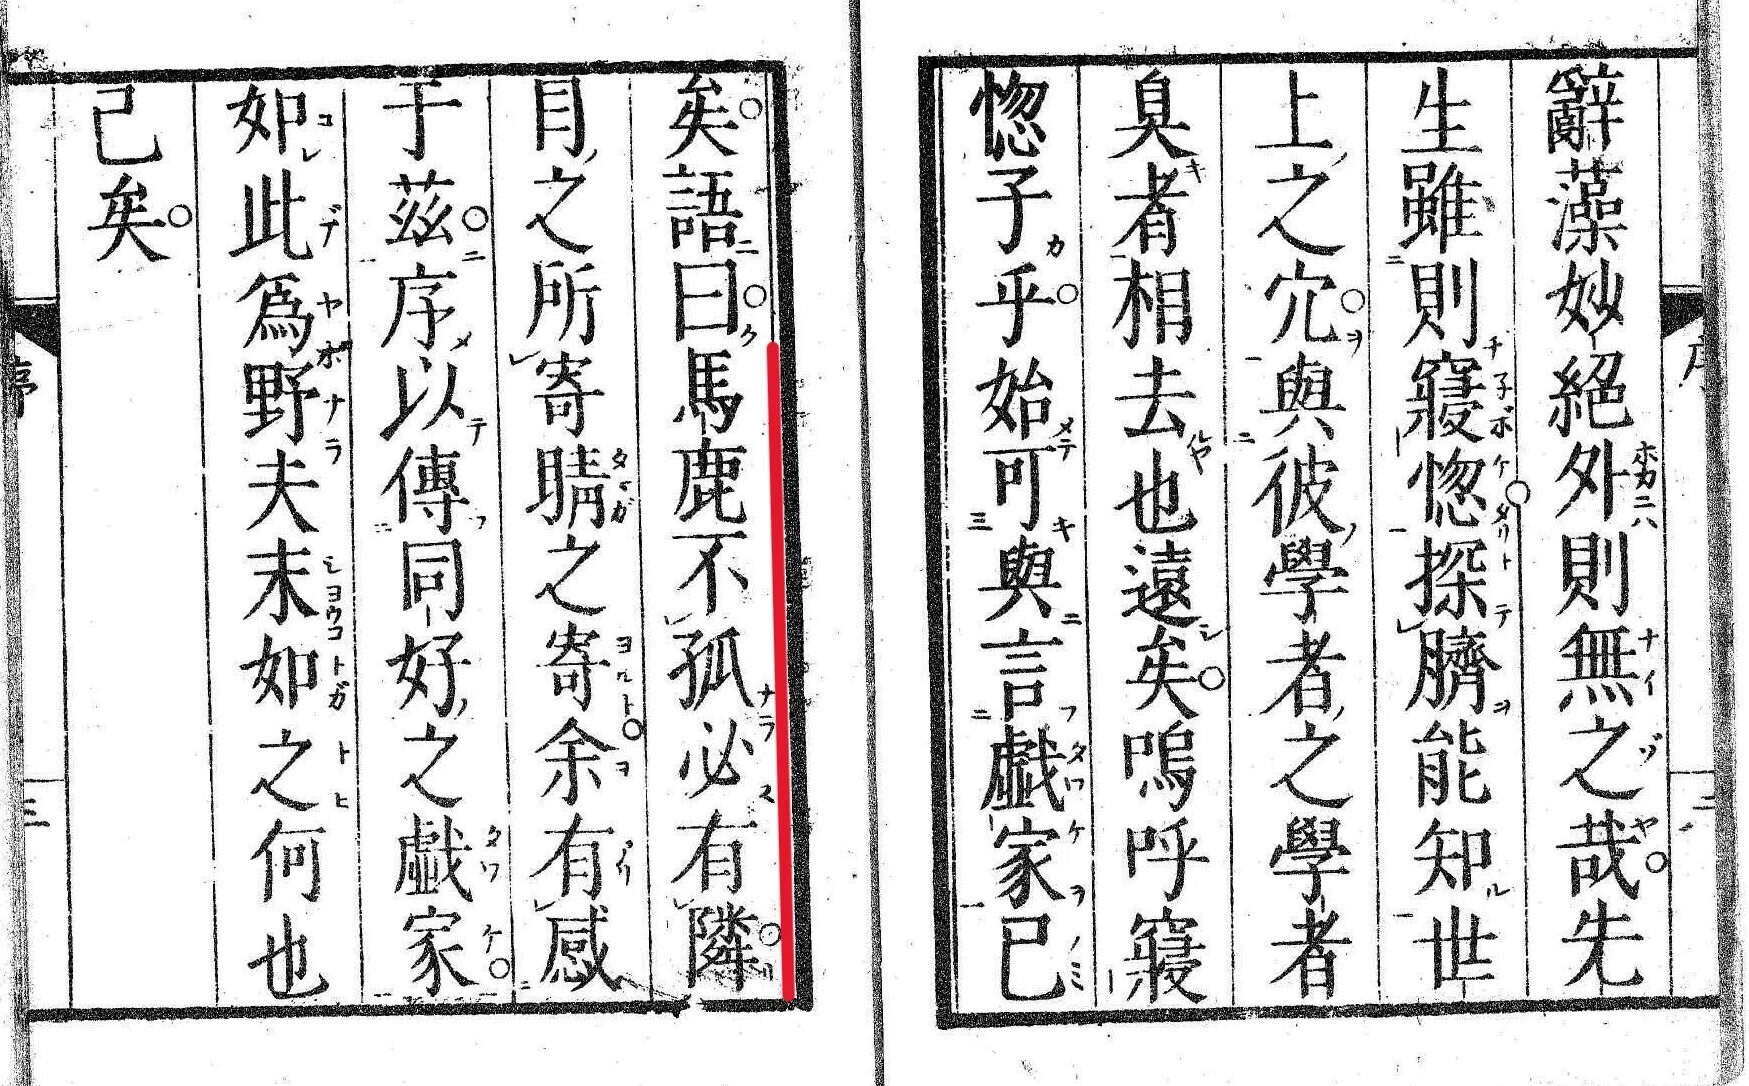 辭藻妙絕外則無之哉先
生雖則寢惚探臍能知世
上之穴與彼學者之學者
臭者相去也遠矣嗚呼寢
惚子乎始可與言戱家已
矣語曰馬鹿不孤必有隣
目之所寄睛之寄余有感
于茲序以傳同好之戱家
如此爲野夫末如之何也
己矣
序
三